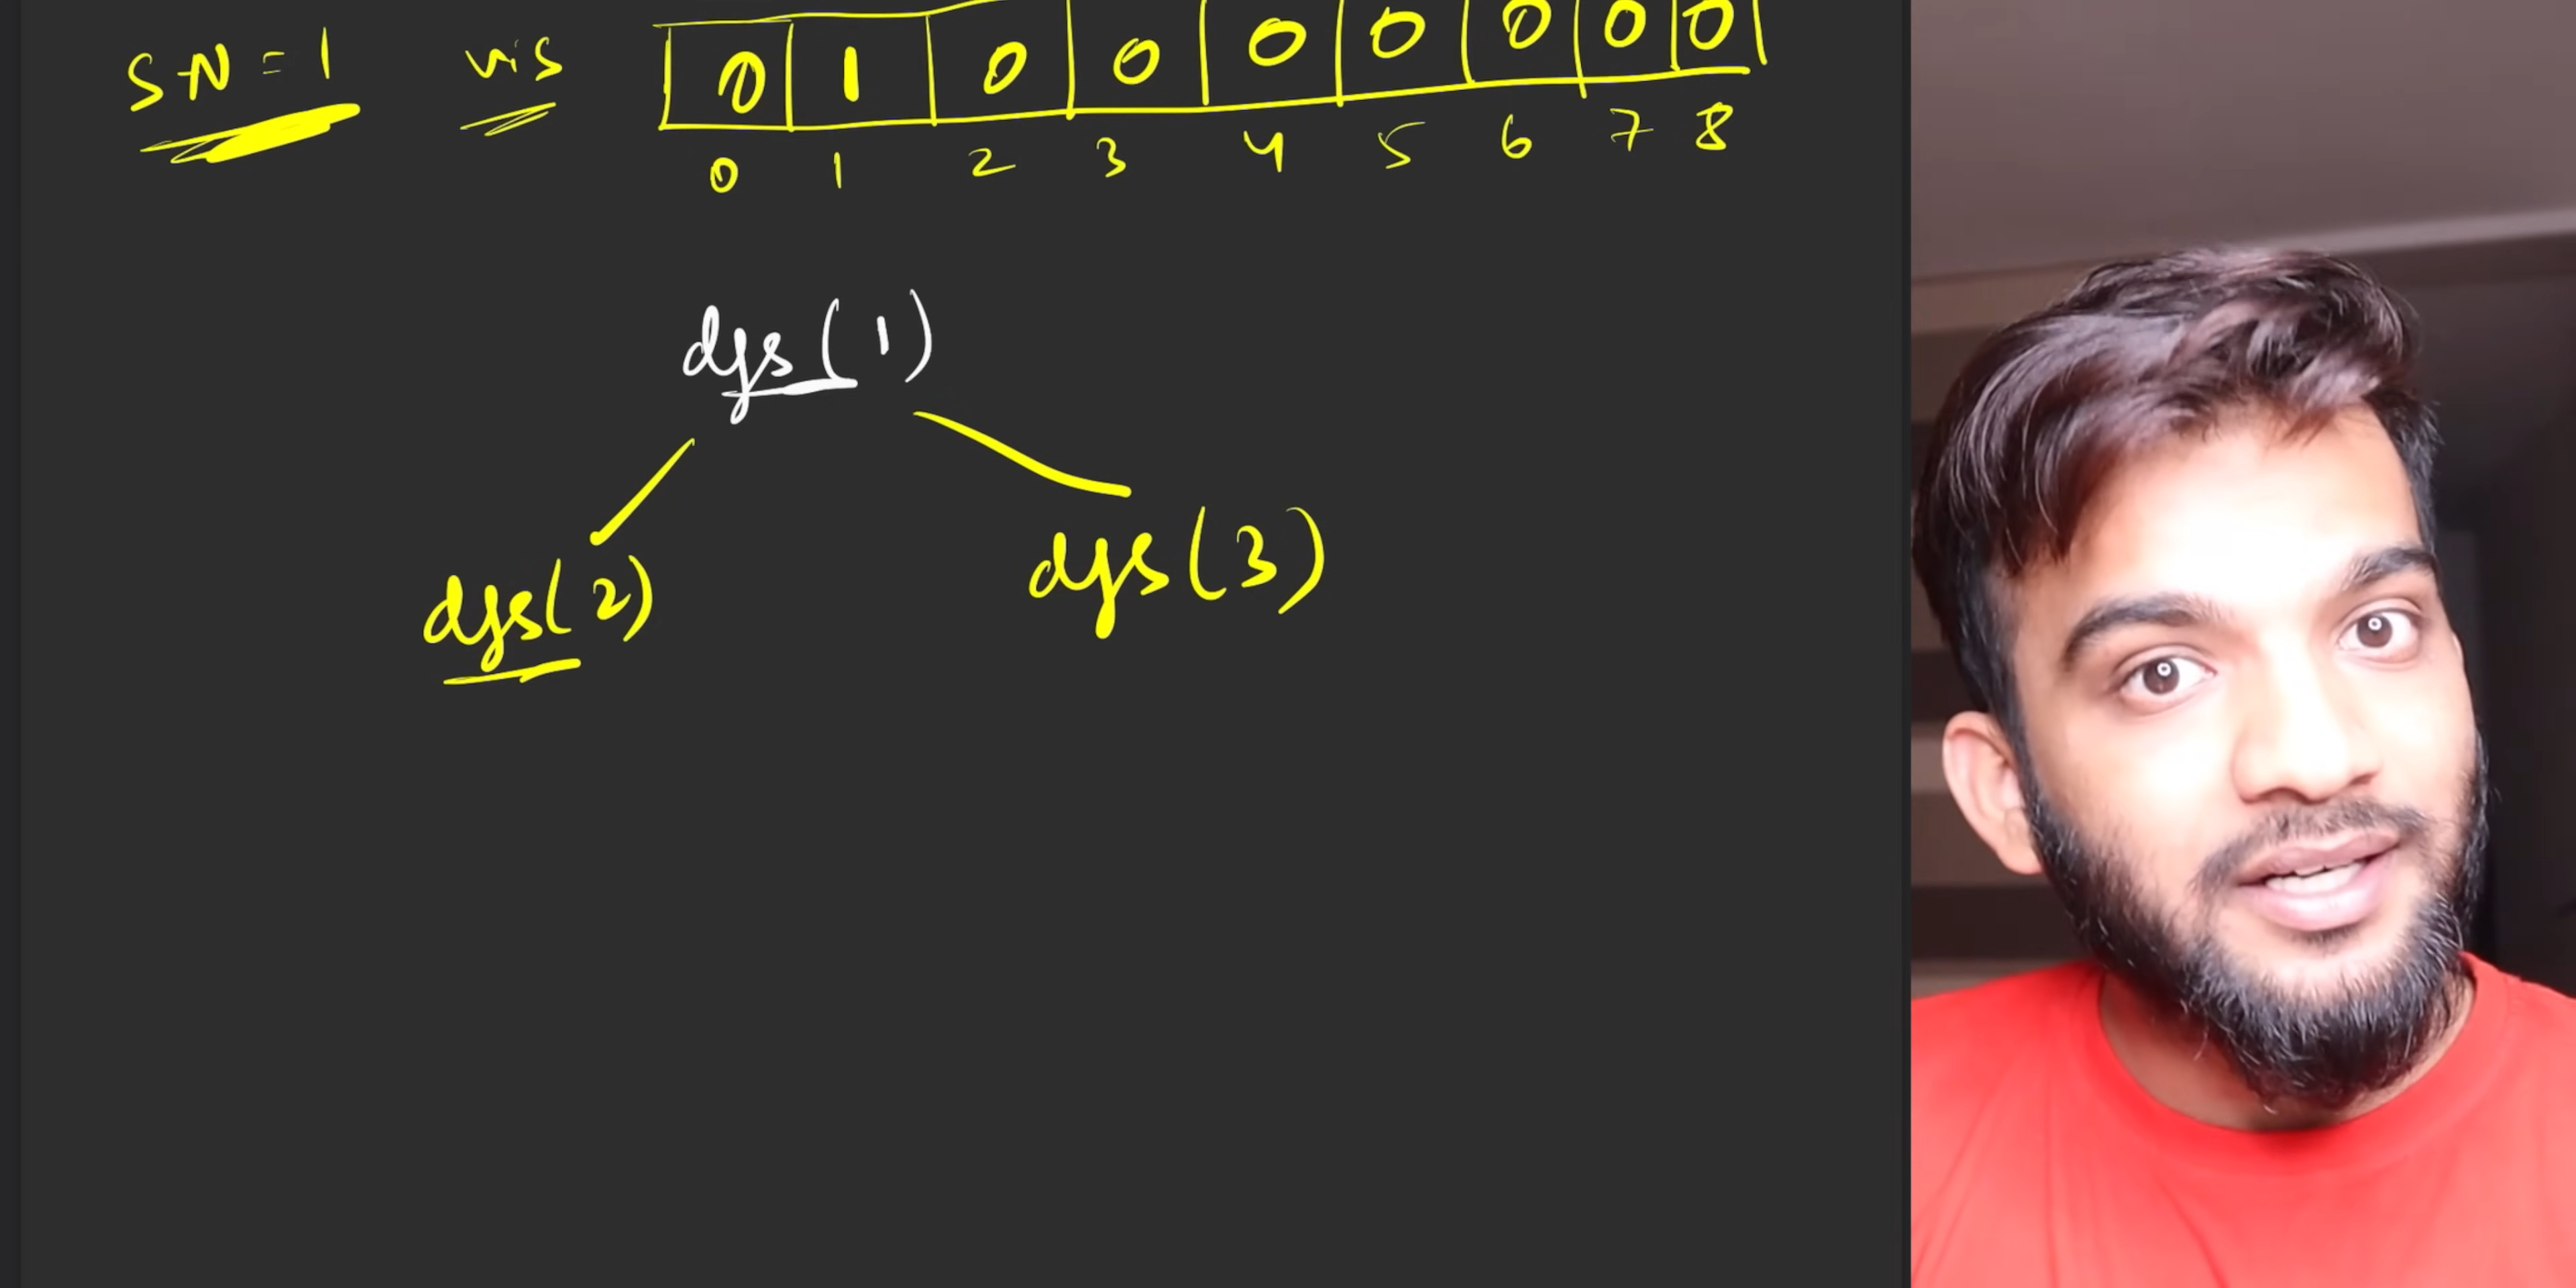 SN = 1 vis 0 1 0 0 0 0 0 0 0
0 1 2 3 4 5 6 7 8
dfs(1)
dfs(2) dfs(3)